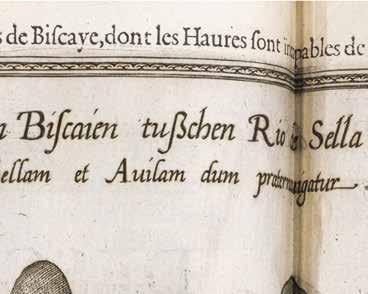 s de Biſcaye, dont les Haures ſont pables de
Biſcaien tußchen Rio Sella
ellam et Avilam dum